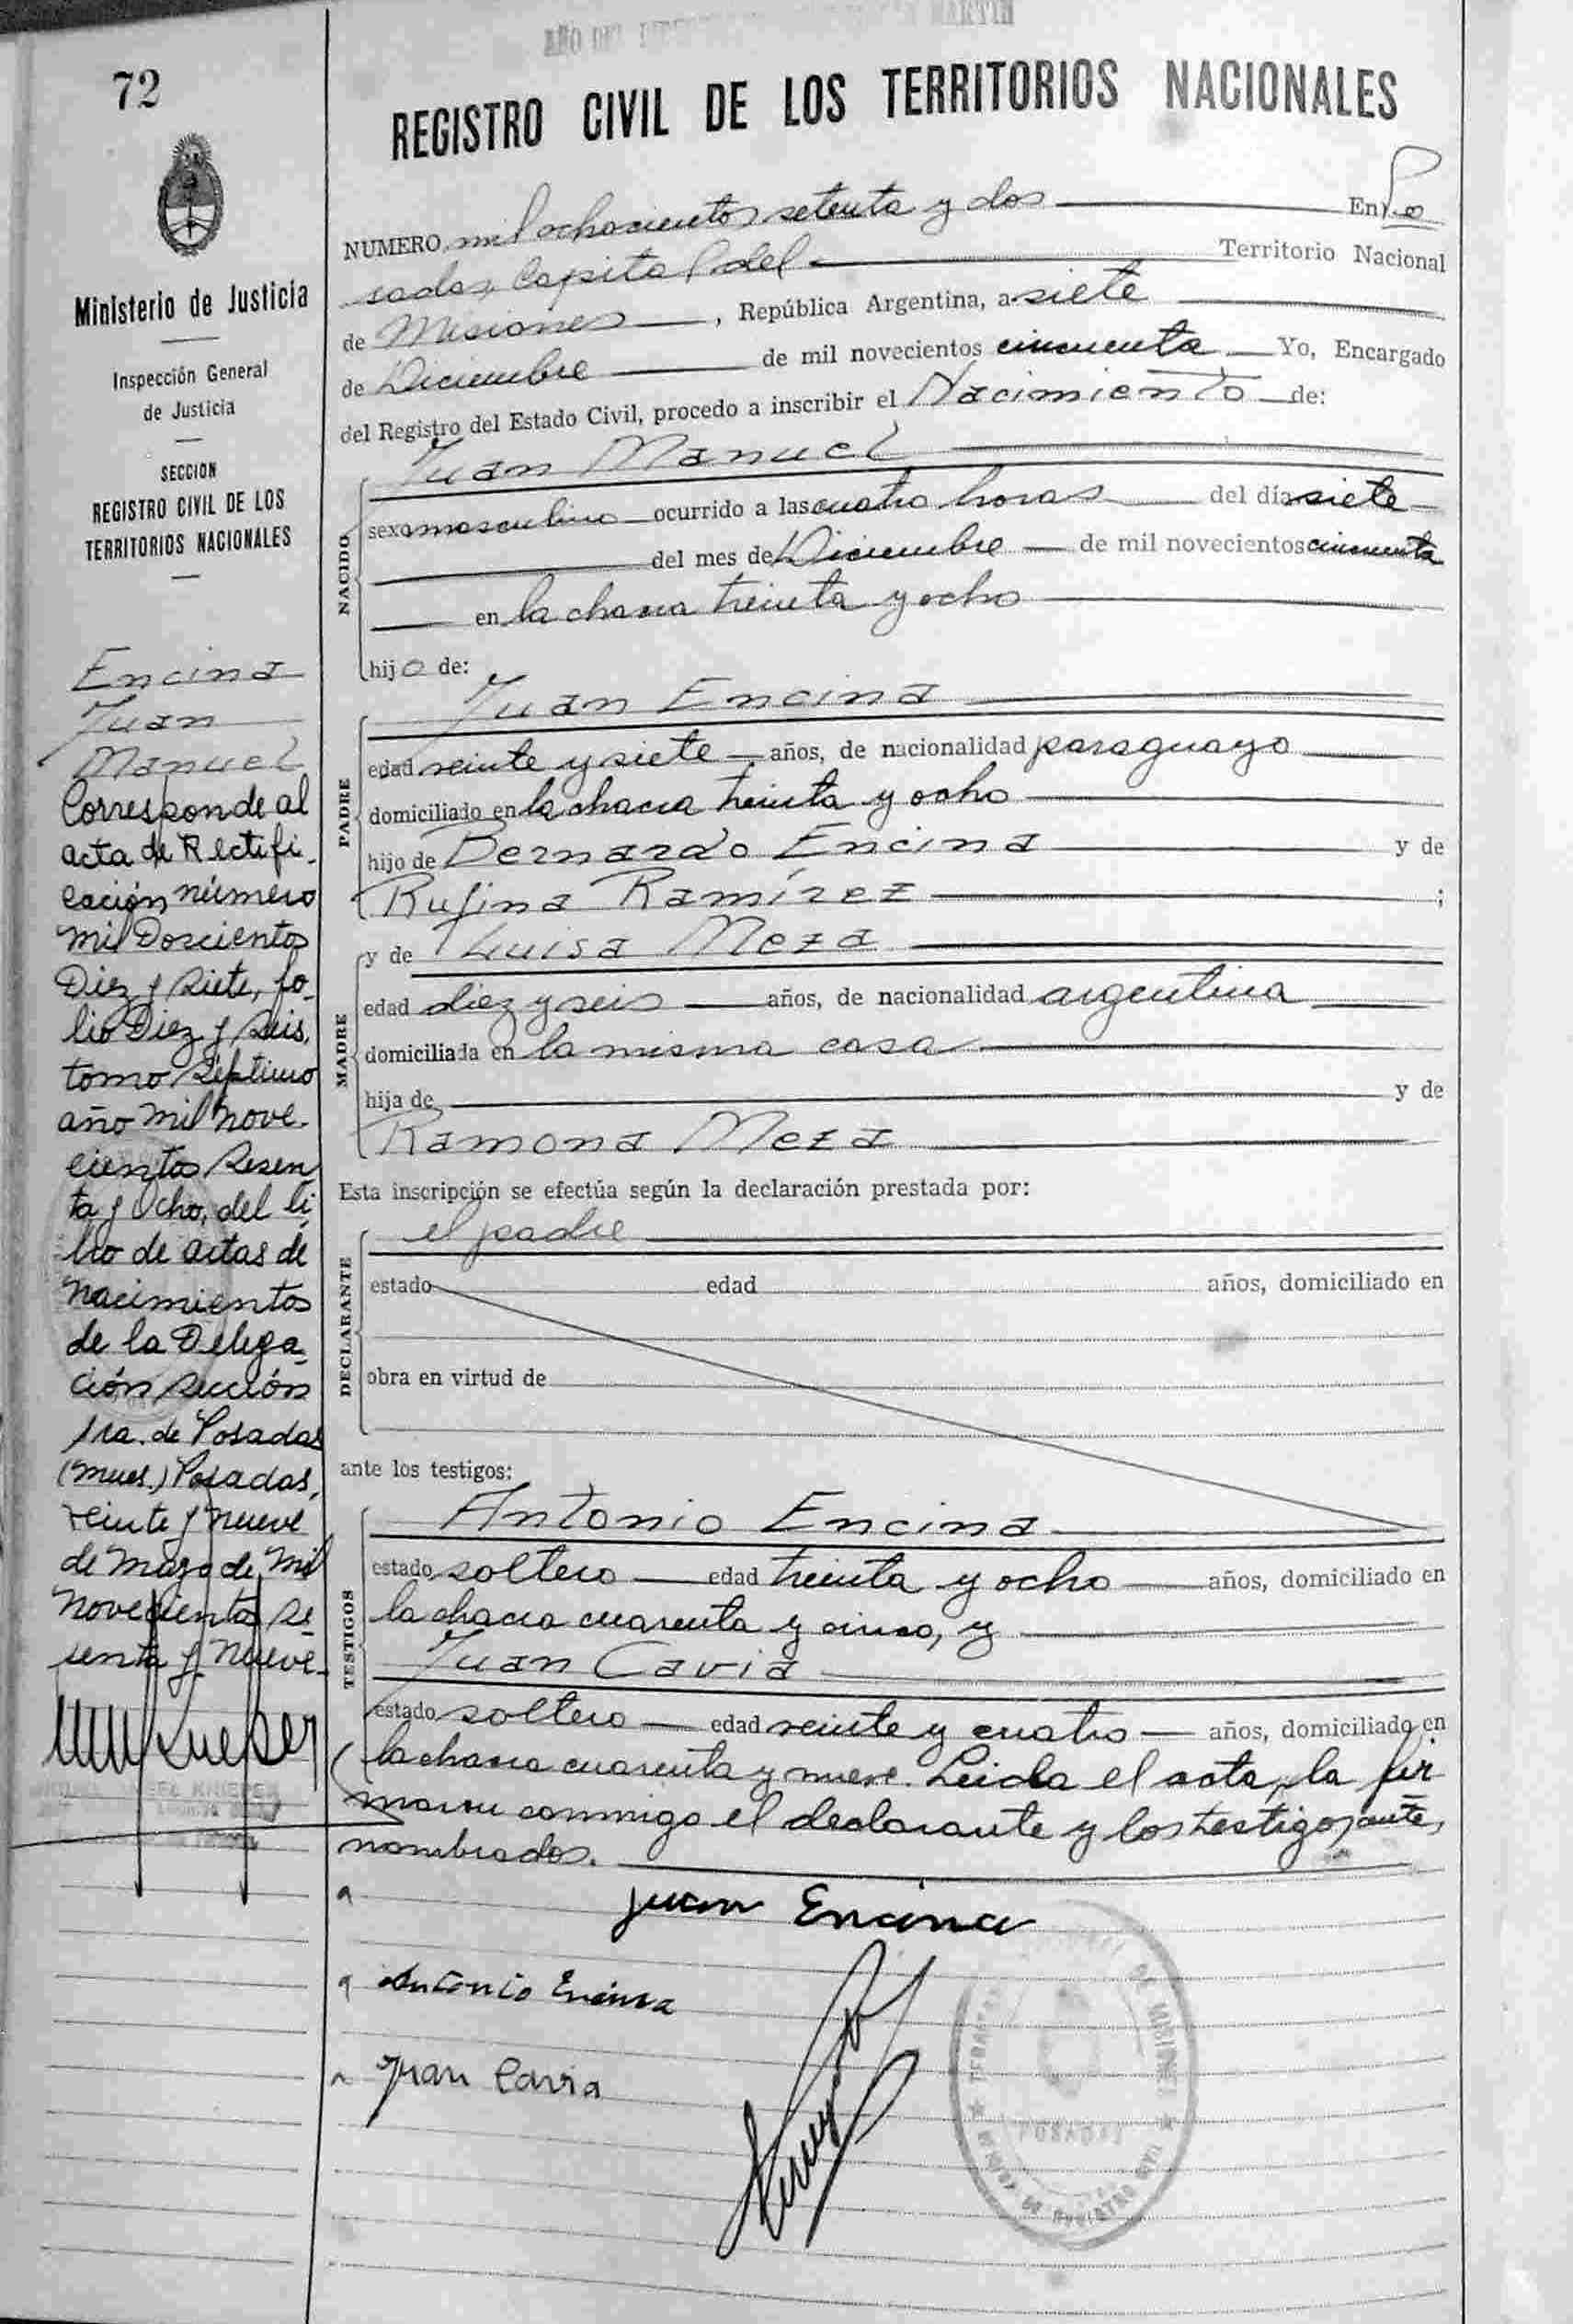 AÑO DEL MARTIN
72
REGISTRO CIVIL DE LOS TERRITORIOS NACIONALES
Ministerio de Justicia
Inspección General
de Justicia
SECCION
REGISTRO CIVIL DE LOS
TERRITORIOS NACIONALES
Encina
Juan
Manuel
Corresponde al
acta de Rectifi-
cación número
mil Doscientos
Diez y siete, fo-
lio Diez y seis,
tomo séptimo
año mil nove-
cientos sesen
ta y Ocho, del li
bro de actas de
nacimientos
de la Delega-
ción sección
1ra. de Posadas
(mnes.) Posadas,
veinte y nueve
de mazo de mil
novecientos se
senta y nueve-
NUMERO mil ochocientos setenta y dos En Po
sadas, Capital del Territorio Nacional
de Misiones, República Argentina, a siete
de Diciembre de mil novecientos cincuenta Yo, Encargado
del Registro del Estado Civil, procedo a inscribir el Nacimiento de:
NACIDO
Juan Manuel
sexo masculino ocurrido a las cuatro horas del día siete
del mes de Diciembre de mil novecientos cincuenta
en la chacra treinta y ocho
hijo de:
PADRE
Juan Encina
edad veinte y siete años, de nacionalidad paraguayo
domiciliado en la chacra treinta y ocho
hijo de Bernardo Encina y de
Rufina Ramírez ;
MADRE
y de Luisa Meza
edad diez y seis años, de nacionalidad argentina
domiciliada en la misma casa
hija de y de
Ramona Meza
Esta inscripción se efectúa según la declaración prestada por:
DECLARANTE
el padre
estado edad años, domiciliado en
obra en virtud de
ante los testigos:
TESTIGOS
Antonio Encina
estado soltero edad treinta y ocho años, domiciliado en
la chacra cuarenta y cinco, y
Juan Cavia
estado soltero edad veinte y cuatro años, domiciliado en
la chacra cuarenta y nueve. Leida el acta, la fir
maron conmigo el declarante y los testigos ante,
nombrados.
Juan Encina
Antonio Encina
Juan Cavia
POSADAS